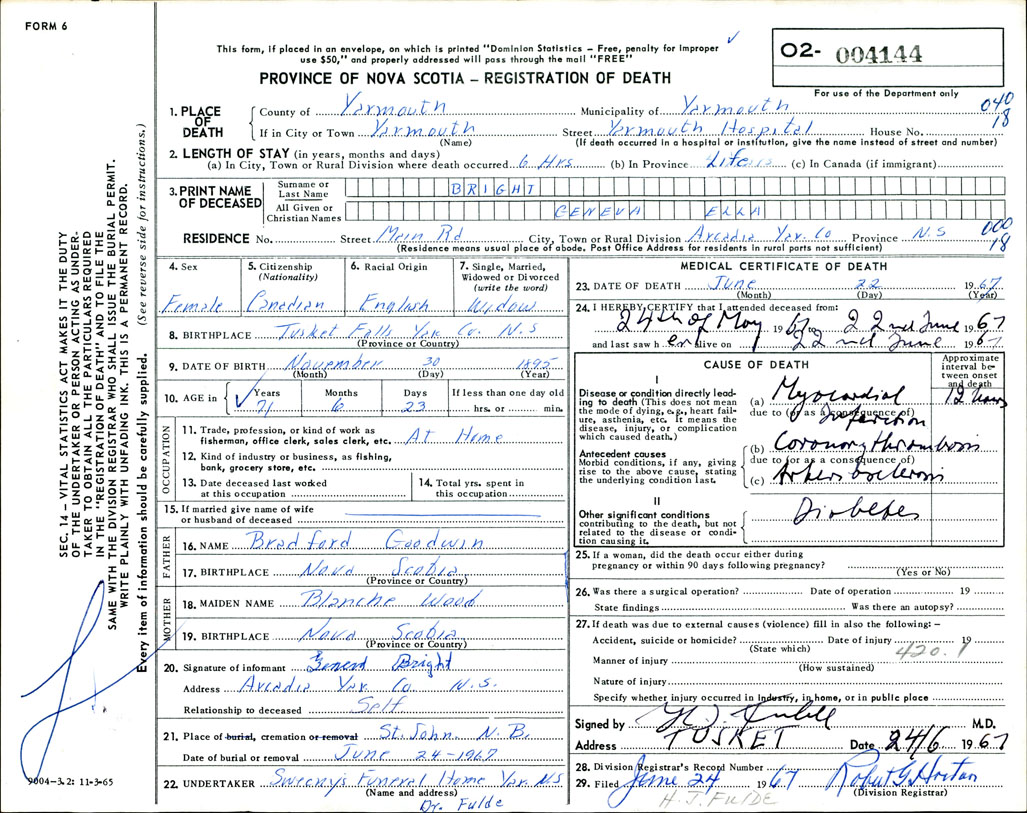 FORM 6
This form, if placed in an envelope, on which is printed "Dominion Statistics – Free, penalty for improper
use $50," and properly addressed will pass through the mail "FREE"
PROVINCE OF NOVA SCOTIA – REGISTRATION OF DEATH
O2- 004144
For use of the Department only
040
18
1. PLACE OF DEATH
County of Yarmouth Municipality of Yarmouth
If in City or Town Yarmouth Street Yarmouth Hospital House No.
(Name) (If death occurred in a hospital or institution, give the name instead of street and number)
2. LENGTH OF STAY (in years, months and days)
(a) In City, Town or Rural Division where death occurred 6 Hrs (b) In Province (c) In Canada (if immigrant)
3. PRINT NAME OF DECEASED
Surname or Last Name BRIGHT
All Given or Christian Names GENEVA ELLA
000
18
RESIDENCE No. Street Main Rd City, Town or Rural Division Arcadia Yar. Co Province N.S
(Residence means usual place of abode. Post Office Address for residents in rural parts not sufficient)
4. Sex
Female
5. Citizenship
(Nationality)
Canadian
6. Racial Origin
English
7. Single, Married,
Widowed or Divorced
(write the word)
Widow
8. BIRTHPLACE Tusket Falls Yar. Co. N.S
(Province or Country)
9. DATE OF BIRTH November 30 1895
(Month) (Day) (Year)
10. AGE in
Years
71
Months
6
Days
23
If less than one day old
hrs. or min.
OCCUPATION
11. Trade, profession, or kind of work as
fisherman, office clerk, sales clerk, etc. At Home
12. Kind of industry or business, as fishing,
bank, grocery store, etc.
13. Date deceased last worked
at this occupation
14. Total yrs. spent in
this occupation
15. If married give name of wife
or husband of deceased
FATHER
16. NAME Bradford Goodwin
17. BIRTHPLACE Nova Scotia
(Province or Country)
MOTHER
18. MAIDEN NAME Blanche Wood
19. BIRTHPLACE Nova Scotia
(Province or Country)
20. Signature of informant Bright
Address Arcadia Yar. Co. N.S.
Relationship to deceased Self
21. Place of burial, cremation or removal St. John N.B.
Date of burial or removal June 24-1967
22. UNDERTAKER Sweeny's Funeral Home Yar. N.S
(Name and address)
Dr. Fulde
MEDICAL CERTIFICATE OF DEATH
23. DATE OF DEATH June 22 1967
(Month) (Day) (Year)
24. I HEREBY CERTIFY that I attended deceased from:
24th of May 1967 to 22nd June 1967
and last saw her alive on 22nd June 1967
CAUSE OF DEATH
Approximate
interval be-
tween onset
and death
I
Disease or condition directly lead-
ing to death (This does not mean
the mode of dying, e.g., heart fail-
ure, asthenia, etc. it means the
disease, injury, or complication
which caused death.)
(a) Myocardial
due to (or as a consequence of)
infarction
12 hours
Antecedent causes
Morbid conditions, if any, giving
rise to the above cause, stating
the underlying condition last.
(b) Coronary thrombosis
due to (or as a consequence of)
(c) Arteriosclerosis
II
Other significant conditions
contributing to the death, but not
related to the disease or condi-
tion causing it.
Diabetes
25. If a woman, did the death occur either during
pregnancy or within 90 days following pregnancy?
(Yes or No)
26. Was there a surgical operation? Date of operation 19
State findings Was there an autopsy?
27. If death was due to external causes (violence) fill in also the following: –
Accident, suicide or homicide? Date of injury 19
(State which)
420.1
Manner of injury
(How sustained)
Nature of injury
Specify whether injury occurred in industry, in home, or in public place
Signed by H. J. Fulde M.D.
Address TUSKET Date 24/6 1967
28. Division Registrar's Record Number
29. Filed June 24 1967 Robert G. Horton
(Division Registrar)
H. J. FULDE
SEC. 14 – VITAL STATISTICS ACT MAKES IT THE DUTY
OF THE UNDERTAKER OR PERSON ACTING AS UNDER-
TAKER TO OBTAIN ALL THE PARTICULARS REQUIRED
IN THE "REGISTRATION OF DEATH" AND TO FILE THE
SAME WITH THE DIVISION REGISTRAR WHO SHALL ISSUE THE BURIAL PERMIT.
WRITE PLAINLY WITH UNFADING INK. THIS IS A PERMANENT RECORD.
Every item of information should be carefully supplied. (See reverse side for instructions.)
9004-3.2: 11-3-65